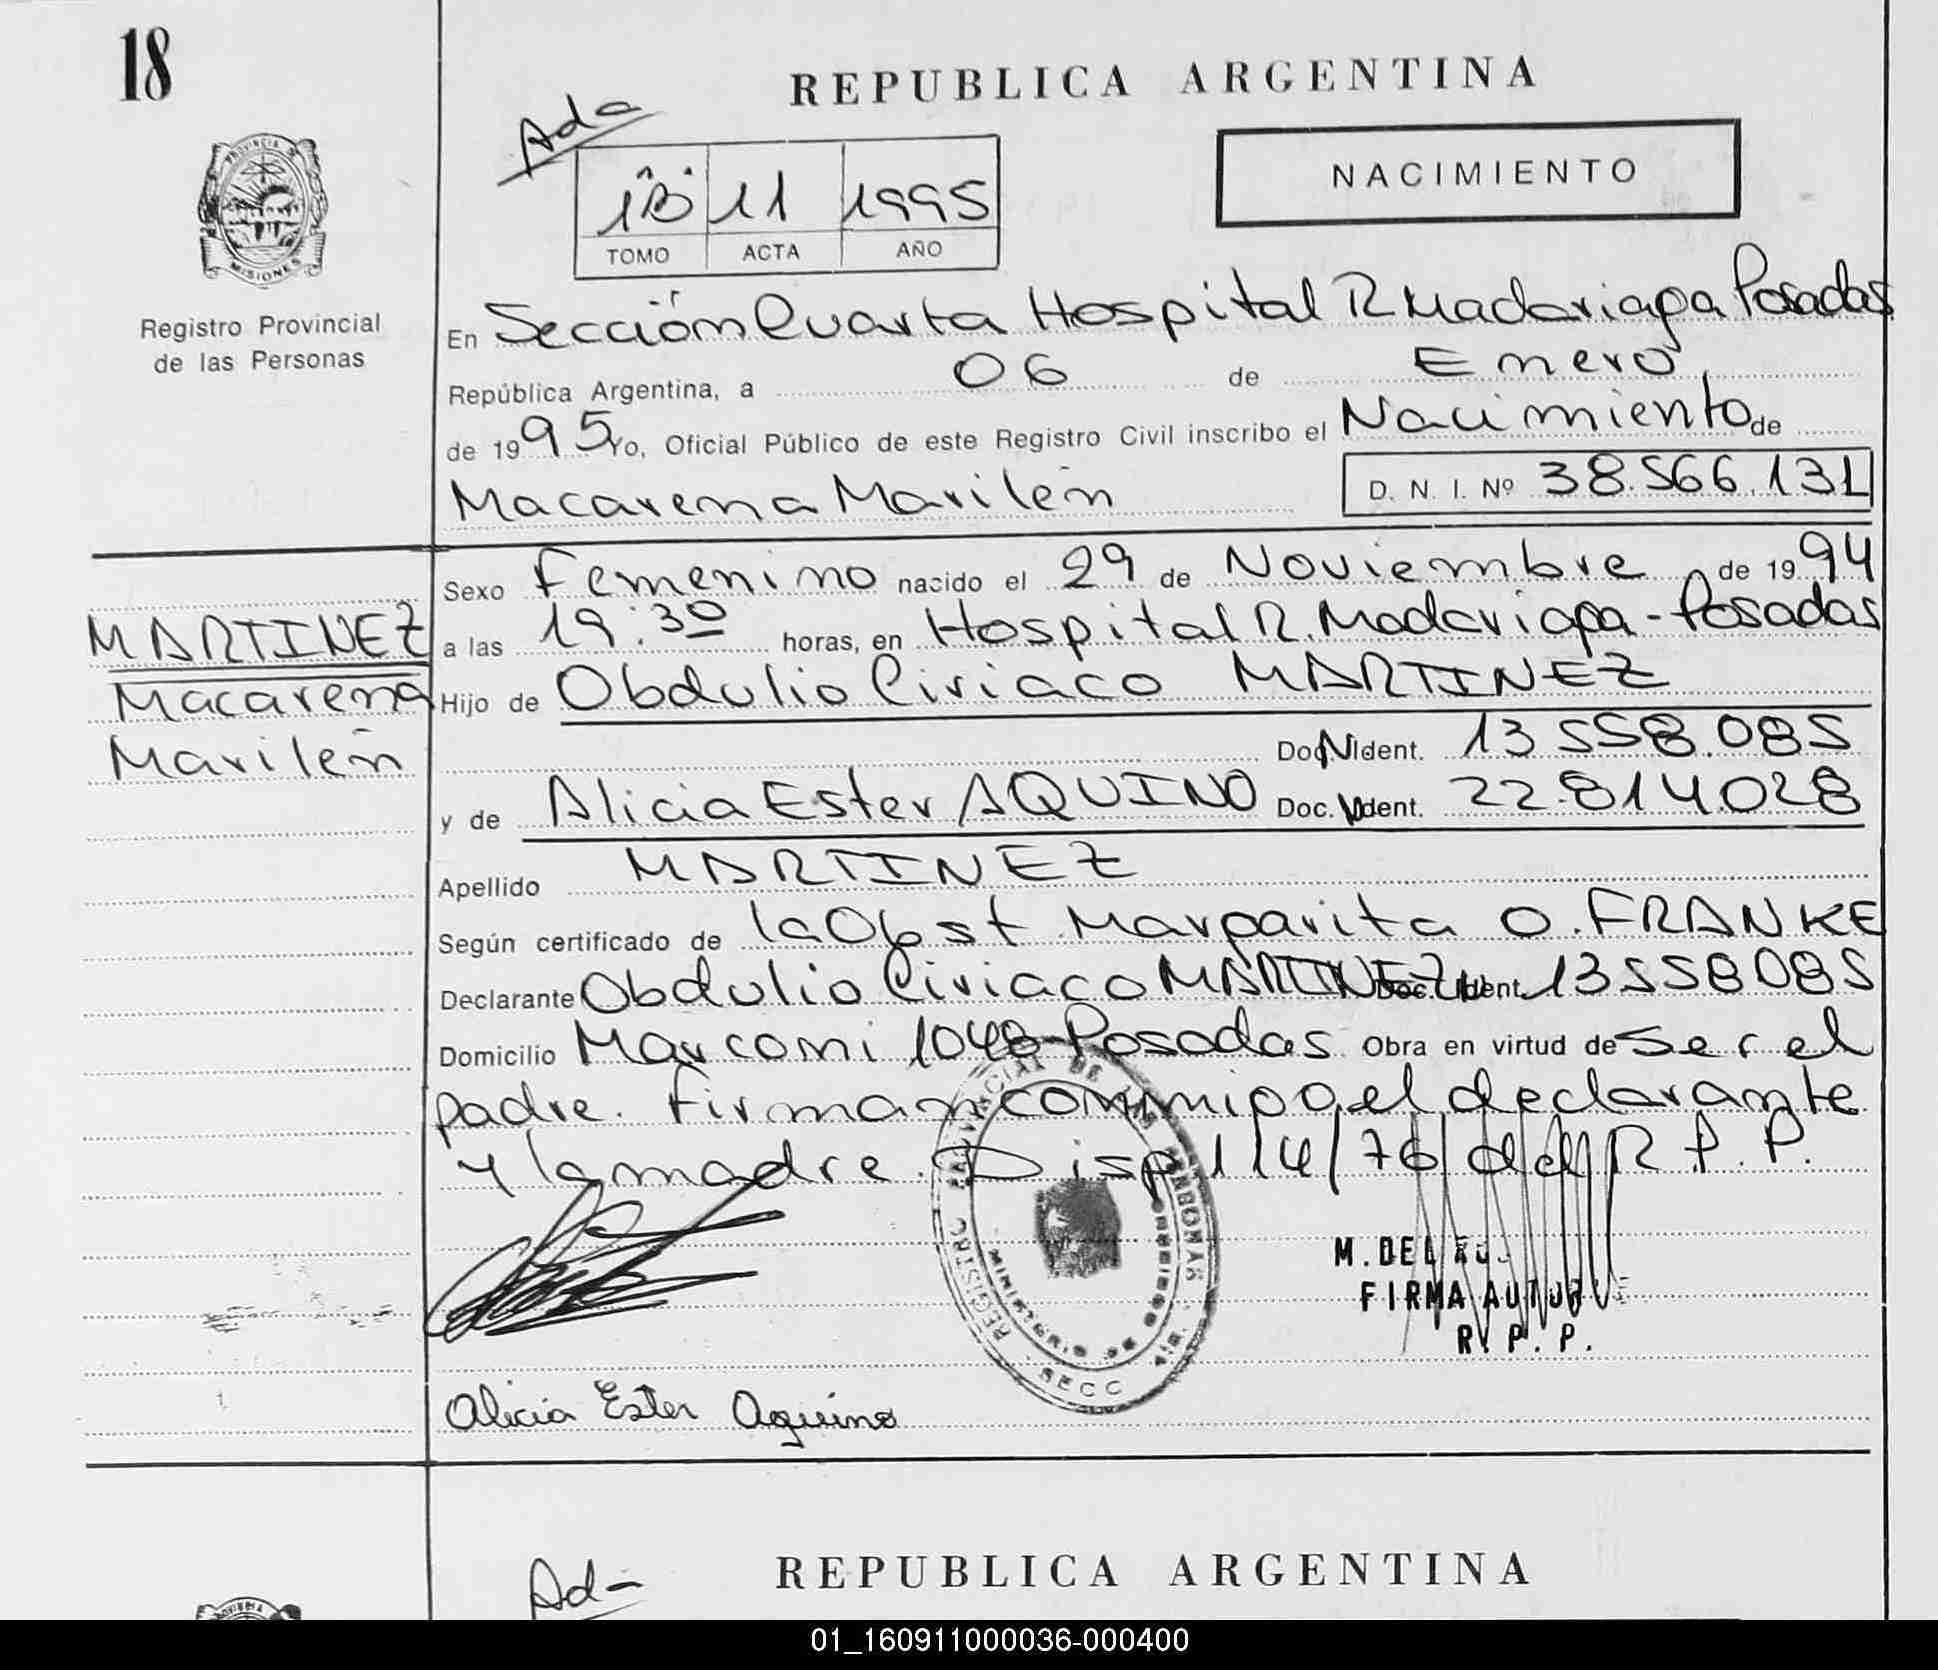 18
REPUBLICA ARGENTINA
Ada
1ºB 11 1995
TOMO ACTA AÑO
NACIMIENTO
PROVINCIA DE
MISIONES
Registro Provincial
de las Personas
En Sección Cuarta Hospital R Madariaga Posadas
República Argentina, a 06 de Enero
de 1995 Yo, Oficial Público de este Registro Civil inscribo el Nacimiento de
Macarena Marilén D. N. I. Nº 38.566.131
Sexo Femenino nacido el 29 de Noviembre de 1994
MARTINEZ
Macarena
Marilén
a las 19:30 horas, en Hospital R. Madariaga - Posadas
Hijo de Obdulio Ciriaco MARTINEZ
Doc. N Ident. 13 558.085
y de Alicia Ester AQUINO Doc. Ident. 22.814.028
Apellido MARTINEZ
Según certificado de la Obst Margarita O. FRANKE
Declarante Obdulio Ciriaco MARTINEZ Doc. Ident. 13558085
Domicilio Marconi 1048 Posadas Obra en virtud de Ser el
padre. Firman conmigo el declarante
y la madre. Disp 114/76 del R P. P.
REGISTRO PROVINCIAL DE LAS PERSONAS
MINISTERIO DE GOBIERNO
SECC
M. DEL
FIRMA
R. P. P.
Alicia Ester Aquino
Ad-
REPUBLICA ARGENTINA
01_160911000036-000400